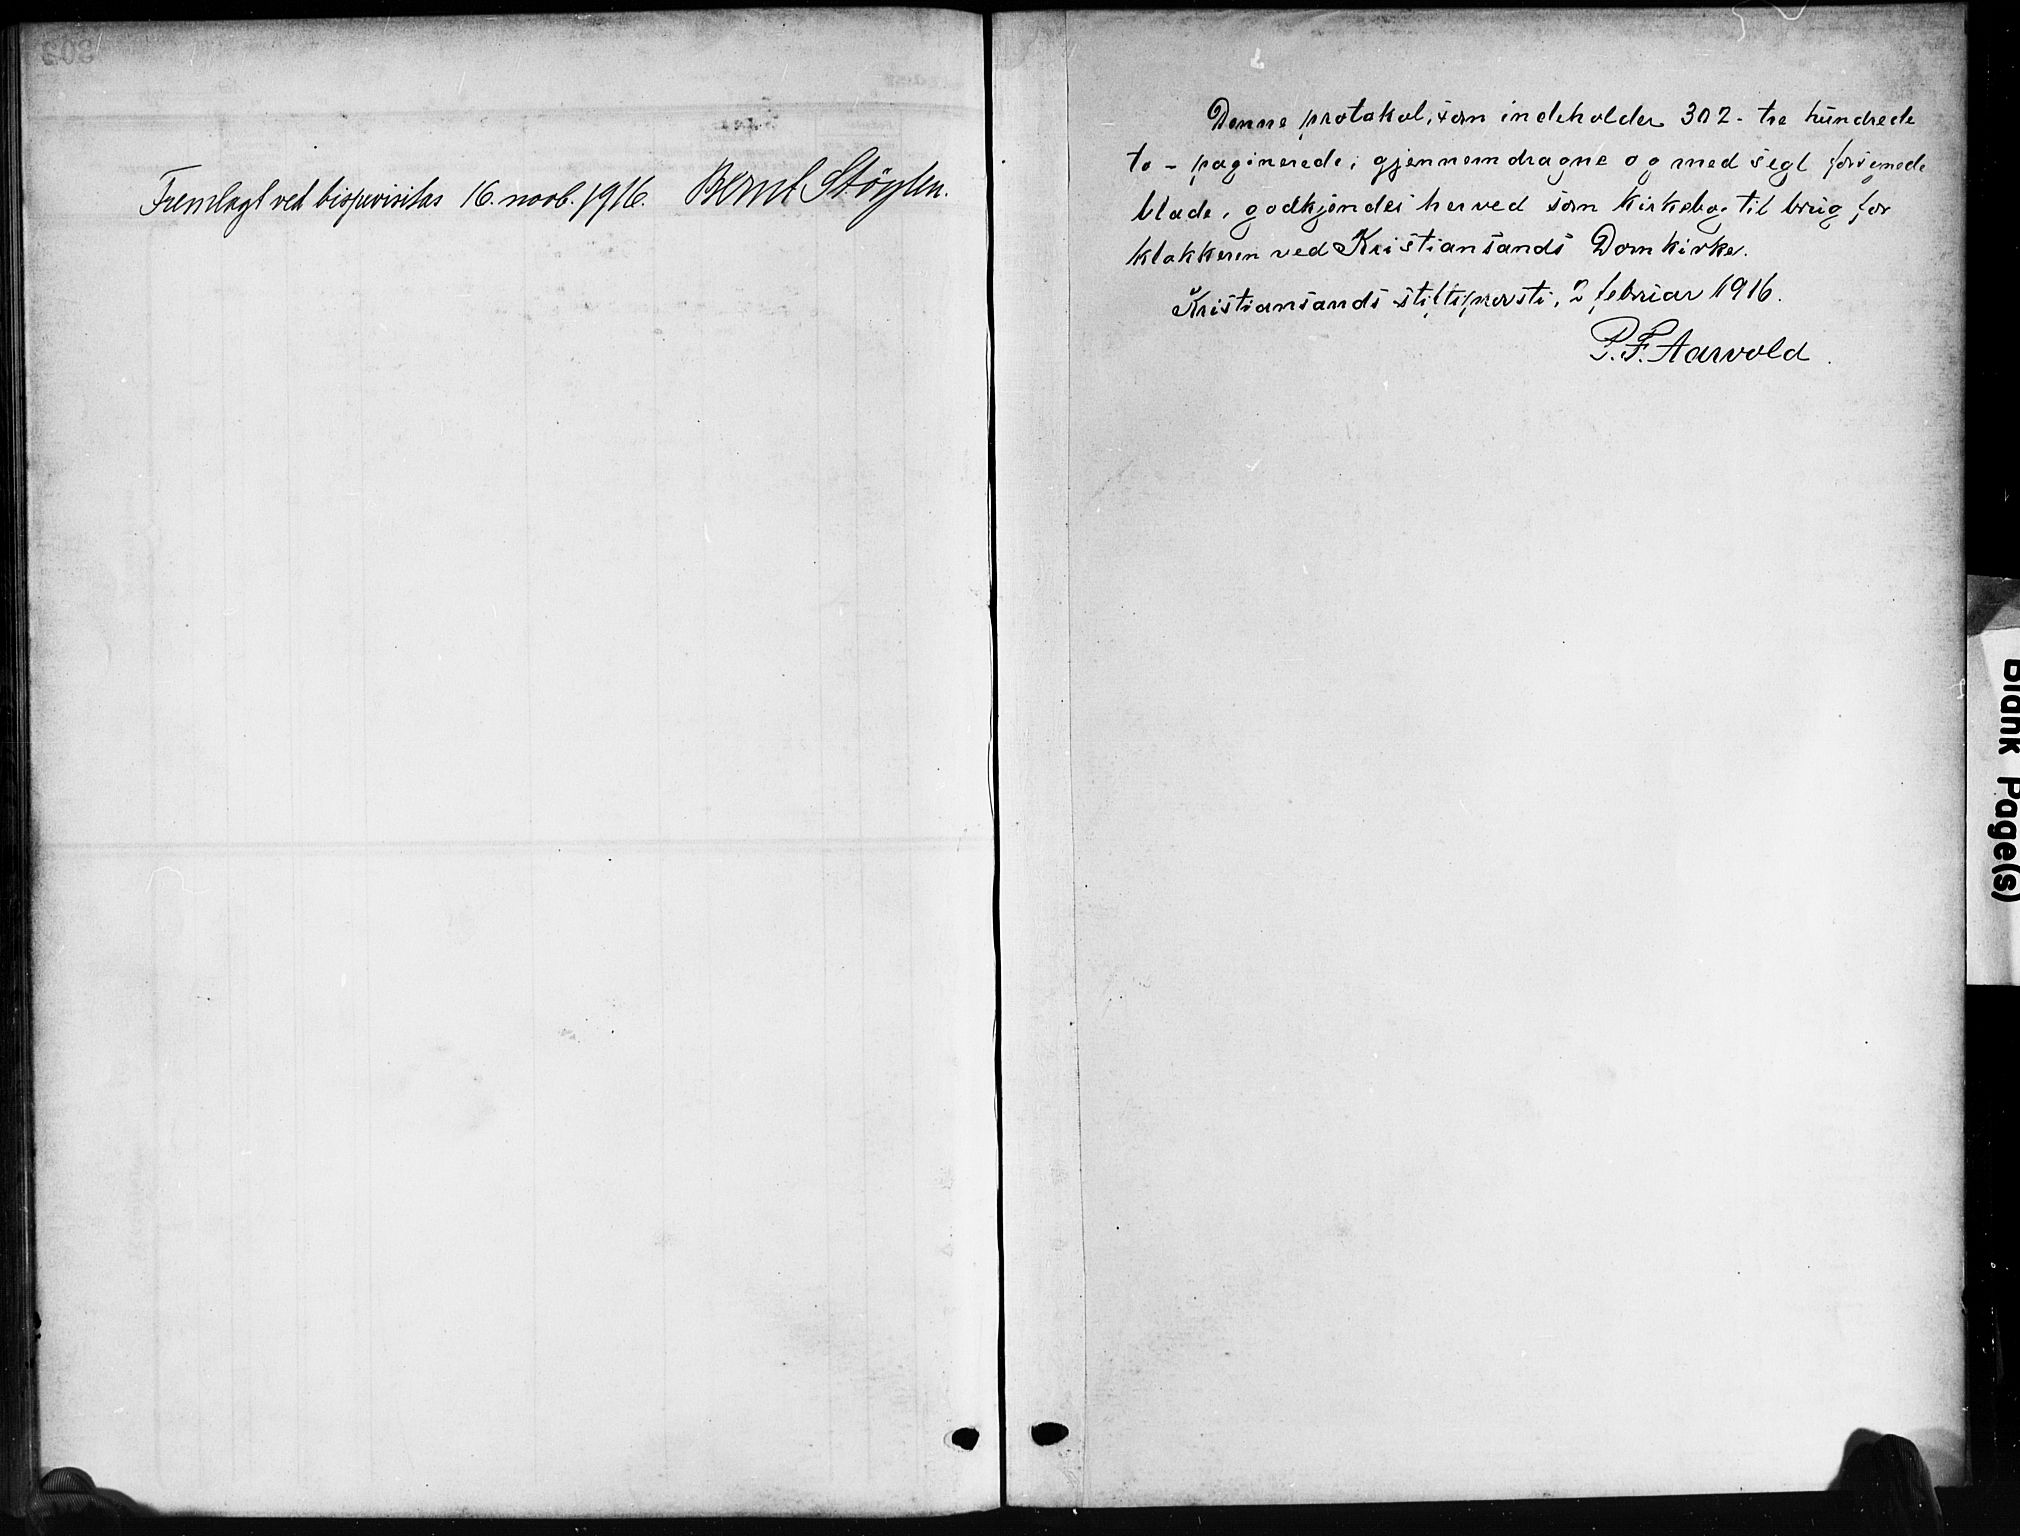 Fremlagt ved bispevisitas 16. novb. 1916. Bernt Støylen.
Denne protokol, som indeholder 302 - tre hundrede
to - paginerede, gjennemdragne og med segl forsynede
blade, godkjendes herved som kirkebog til brug for
klokkeren ved Kristiansands Domkirke.
Kristiansands stiftsprovsti, 2 februar 1916.
P. F. Aarvold.
Blank Page(s)